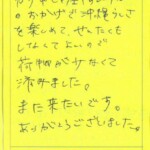 。おかげで沖縄らしさ
を楽しめて、ぜいたくも
しなくてよいので
荷物が少なくて
済みました。
また来たいです。
ありがとうございました。